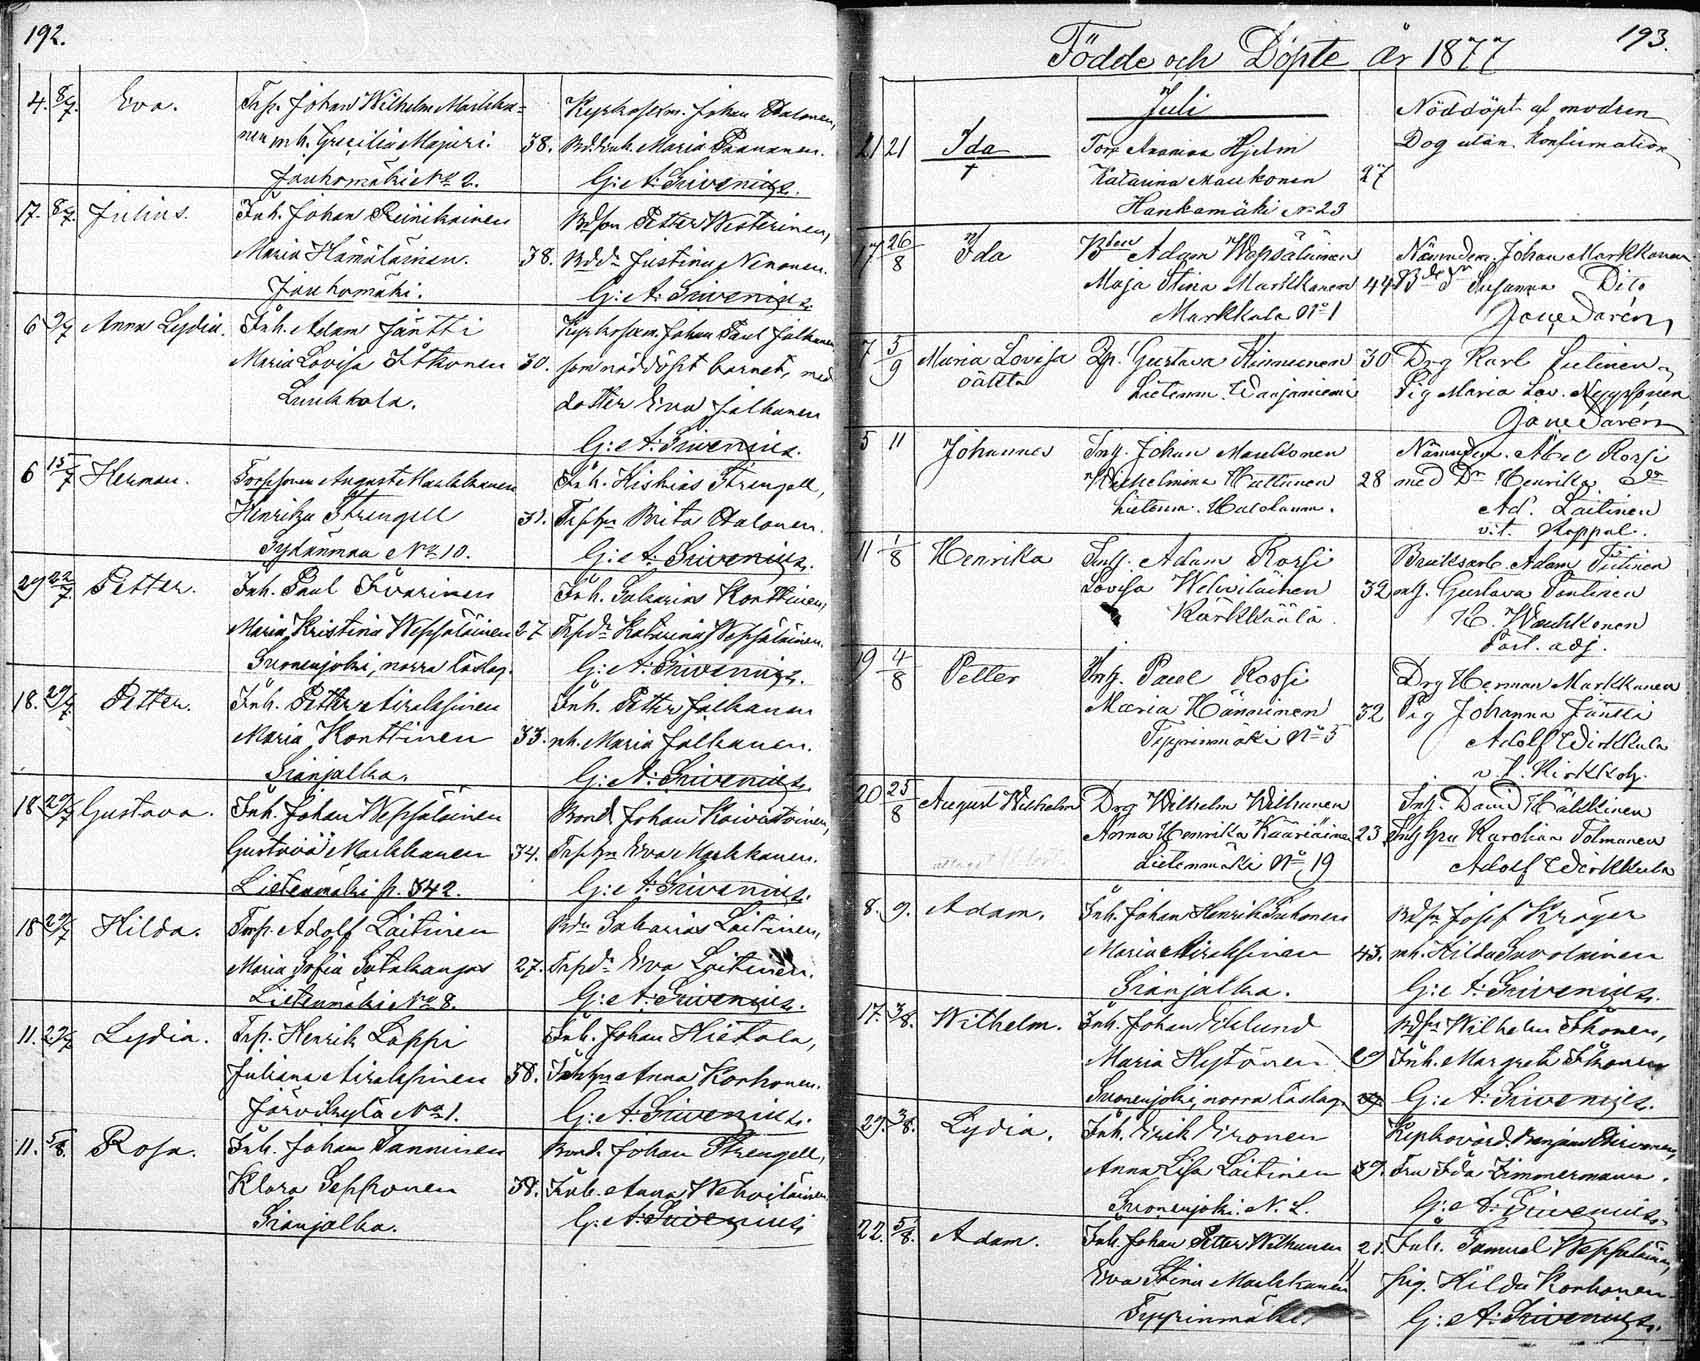 192.
4. 8/7. Eva. Trp. Johan Wilhelm Markka=
nen m h. Grecilia Majuri. 38.
Jauhomäki No 2.
Kyrkoförm. Johan Halonen,
Bd.enk. Maria Paananen.
G: A: Krivenius.
17. 8/7. Julius. Inh. Johan Reinikainen
Maria Hämäläinen. 38.
Jauhomäki.
Bdson Petter Westerinen,
Bddr Justina Nenonen.
G: A: Krivenius.
6 9/7 Anna Lydia. Inh. Adam Jäntti
Maria Lovisa Itkonen 30.
Luukkola.
Kyrkoförm. Johan Paul Jalkanen
som nöddöpt barnet, med
dotter Eva Jalkanen
G: A: Krivenius.
6 15/7 Herman. Torpsonen August Markkanen
Henrika Strengell 31.
Sydänmaa No 10.
Inh. Hiskias Strengell,
Trphu Brita Halonen.
G: A: Krivenius.
29 22/7 Petter. Inh. Paul Ivarinen
Maria Kristina Wepsäläinen 27
Suonenjoki, norra läslag.
Inh. Sakarias Konttinen,
Trpdr Katarina Wepsäläinen.
G: A: Krivenius.
18. 29/7 Petter. Inh. Petter Airaksinen
Maria Konttinen 33.
Sianjalka.
Inh. Petter Jalkanen
inh. Maria Jalkanen.
G: A: Krivenius.
18 29/7 Gustava. Inh. Johan Wepsäläinen
Gustava Markkanen 34.
Lietenmäki p. 842.
Bond. Johan Koivistoinen,
Trphu Eva Markkanen.
G: A: Krivenius.
18 29/7 Hilda. Trp. Adolf Laitinen
Maria Sofia Satukangas 27.
Lietenmäki No 8.
Bdn Sakarias Laitinen,
Trpdr Eva Laitinen.
G: A: Krivenius.
11. 29/7 Lydia. Trp. Henrik Lappi
Juliana Airaksinen 38.
Järvikylä No 1.
Inh. Johan Hietala,
Inhhu Anna Korhonen.
G: A: Krivenius.
11. 5/8. Rosa. Inh. Johan Tanninen
Klara Sepponen 38.
Sianjalka.
Bond. Johan Strengell,
Inh. Anna Wehviläinen
G: A: Krivenius.
193.
Födde och Döpte år 1877
Juli
21 21 Ida Torp Anamas Hjelm
Katarina Maukonen 27
Hankamäki No 23
Nöddöpt af modren
Dog utan Konfirmation
17 26/8 Ida Bden Adam Wepsäläinen
Maja Stina Markkanen 44
Markkala No 1
Nämndem. Johan Markkanen
Susanna Dito
7 5/9 Maria Lovisa
oäkta
Gustava Kinnunen 30
Lietemm. Waajaniemi
Drg Karl Lulinen
Pig Maria Lov. Nyyssönen
5 11 Johannes Johan Maukonen
Wilhelmina Huttunen 28
Nämndem. Abel Rossi
med Dr Henrika Do
Ad. Laitinen
v. t. Kappal.
11 1/8 Henrika Adam Rossi
Lovisa Wehviläinen 32
Kärkkäälä.
Bruksarb. Adam Tiitinen
Gustava Pentinen
K. Wauhkonen
Past. adj.
19 4/8 Petter Paul Rossi
Maria Hänninen 32
Tyyrinmäki No 5
Drg Herman Markkanen
Pig Johanna Jäntti
Adolf Wirkkula
20 25/8 August Wilhelm Drg Wilhelm Wilhunen
Anna Henrika Kääriäinen 23
Lietenmäki No 19
David Hälikinen
Karolina Tolmunen
Adolf Wirkkula
8. 9. Adam. Inh. Johan Henrik Suhonen
Maria Airaksinen 43.
Sianjalka.
Bdsn Josef Kröger
inh. Hilda Savolainen
G: A: Krivenius.
17. 3/8. Wilhelm. Inh. Johan Eklund
Maria Hytönen
Suonenjoki, norra läslag.
Bdsn Wilhelm Ikonen,
Inh. Margreta Ikonen
G: A: Krivenius.
29. 3/8. Lydia. Inh. Erik Eronen
Anna Lisa Laitinen 39.
Suonenjoki. N. L.
Kyrkovärd. Benjam Hirvonen,
Fru Ida Zimmermann.
G: A: Krivenius.
22. 5/8. Adam. Inh. Johan Petter Wilhunen 21.
Eva Stina Markkanen
Tyyrinmäki.
Inh. Samuel Wepsäläinen,
pig. Hilda Korhonen.
G: A: Krivenius.